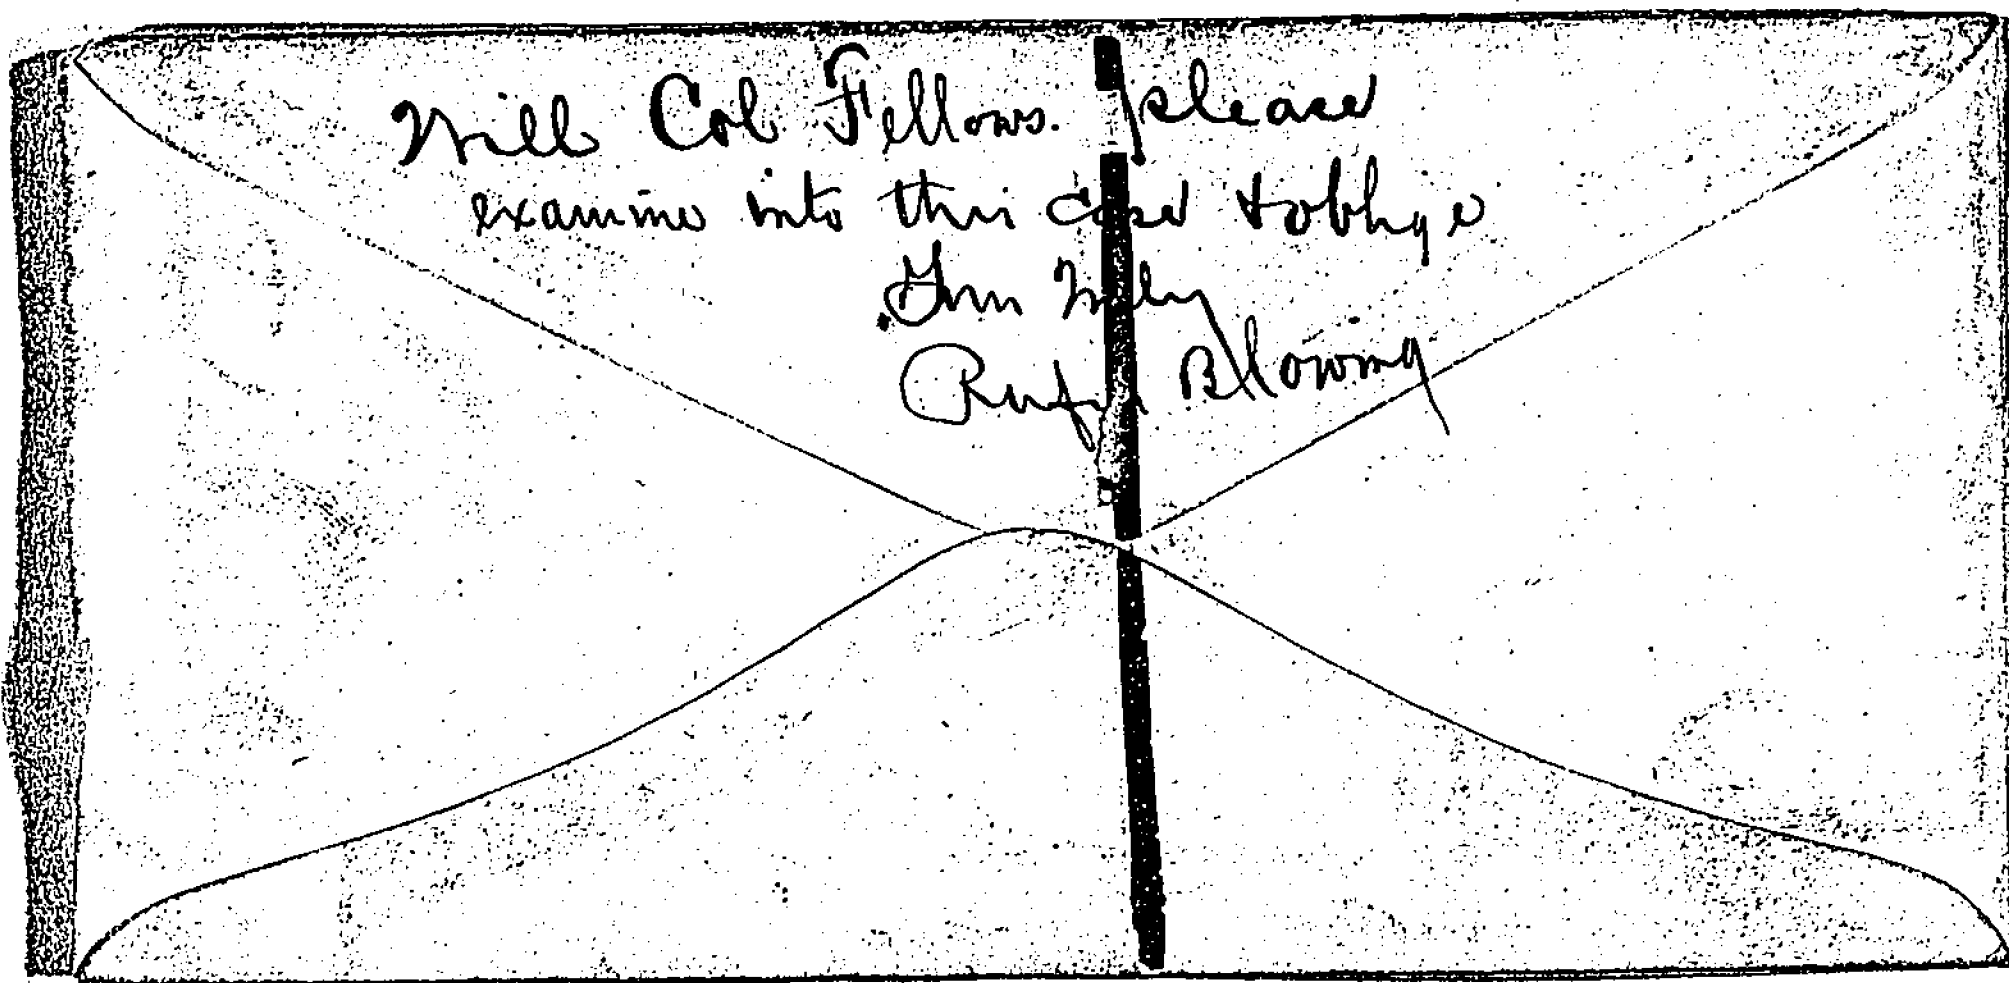 Will Col Fellows. please
examine into this case & oblige
Yours Truly
Rufus B Cowing